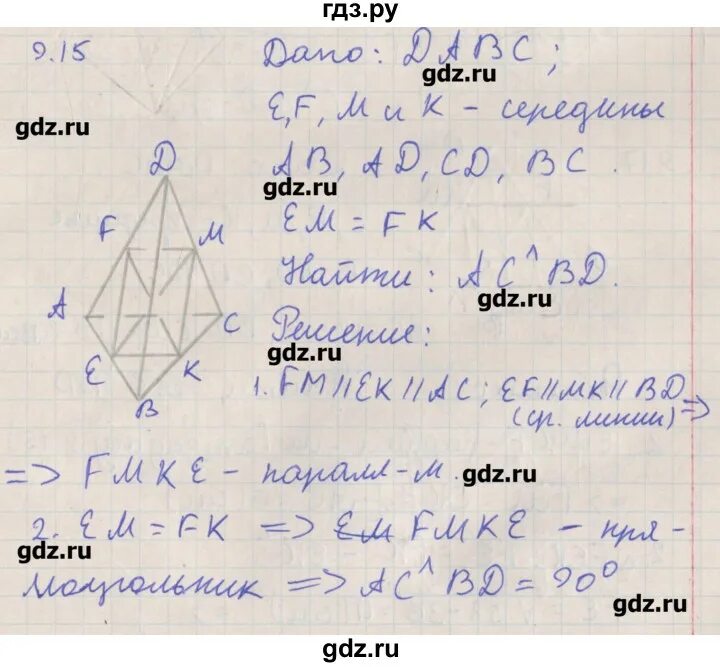 гдз.ру
9.15
Дано: DABC;
gdz.ru
gdz.ru
E, F, M и K - середины
AB, AD, CD, BC.
gdz.ru
EM = FK
Найти: AC^BD.
gdz.ru
Решение:
gdz.ru
D
F
M
A
C
E
K
B
1. FM || EK || AC; EF || MK || BD
(ср. линии) =>
=> FMKE - паралл-м.
gdz.ru
2. EM = FK => EM FMKE - пря-
gdz.ru
моугольник => AC^BD = 90°
gdz.ru
gdz.ru